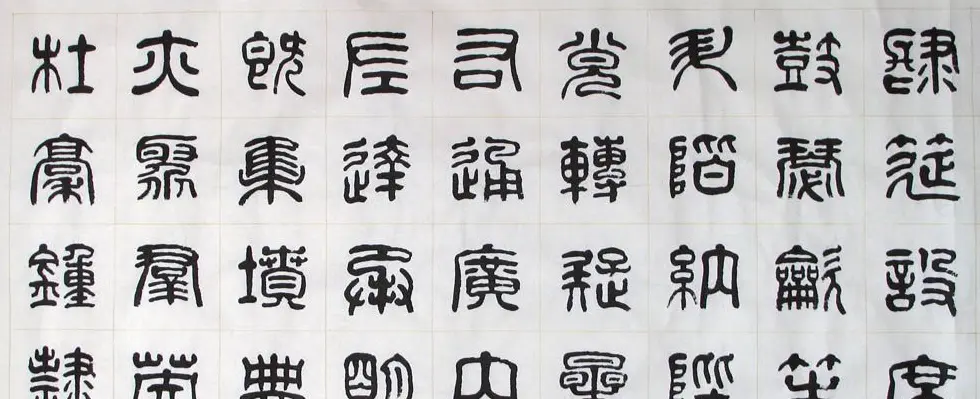 肆筵設席
鼓瑟龡笙
升階納陛
覍轉疑星
右通廣內
左達承明
既集墳典
亦聚羣英
杜稾鍾隸